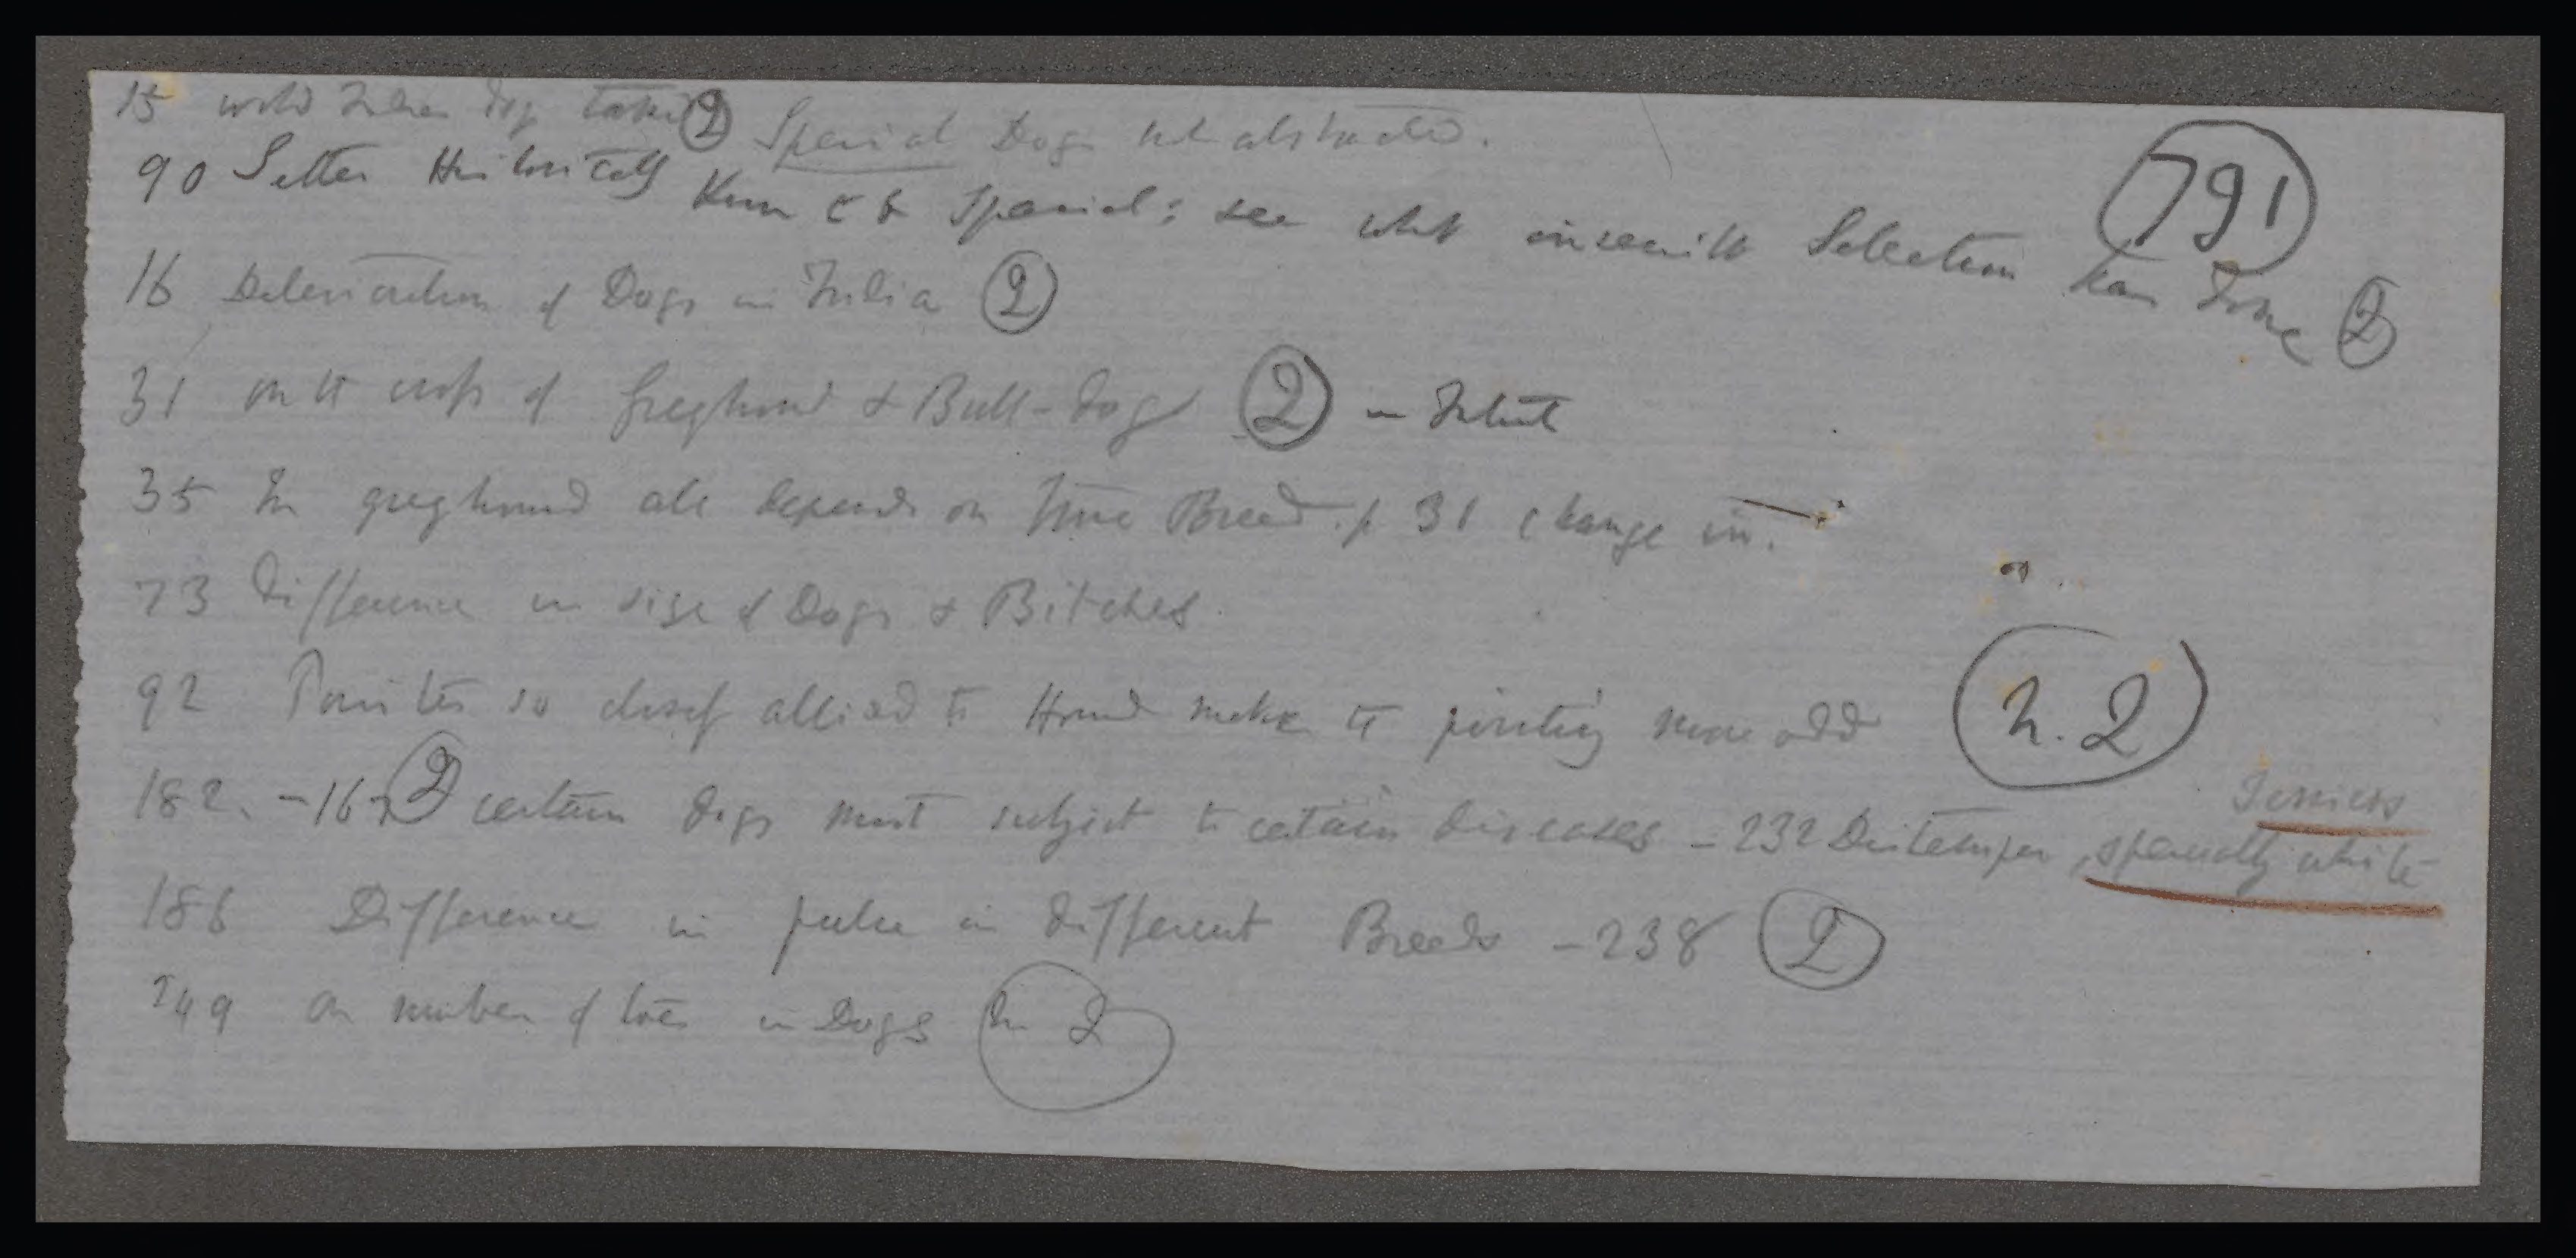 15 wild Indian dog (2) Spaniel Dogs not abstracted.
791
90 Setter Historically Known to be Spaniel; see what Selection has done (2)
16 Deterioration of Dogs in India (2)
31 on the cross of Greyhound & Bull-dog (2) — 
35 In greyhound all depends on true Breed. p 31 change in.
73 Difference in size of Dogs & Bitches.
92 Pointer so closely allied to Hound makes the pointing more odd (n. 2)
Terriers
182. – 167 (2) certain dogs most subject to certain diseases – 232 Distemper, specially white
186 Difference in pulse in different Breeds – 238 (2)
249 On number of toes in Dogs 2